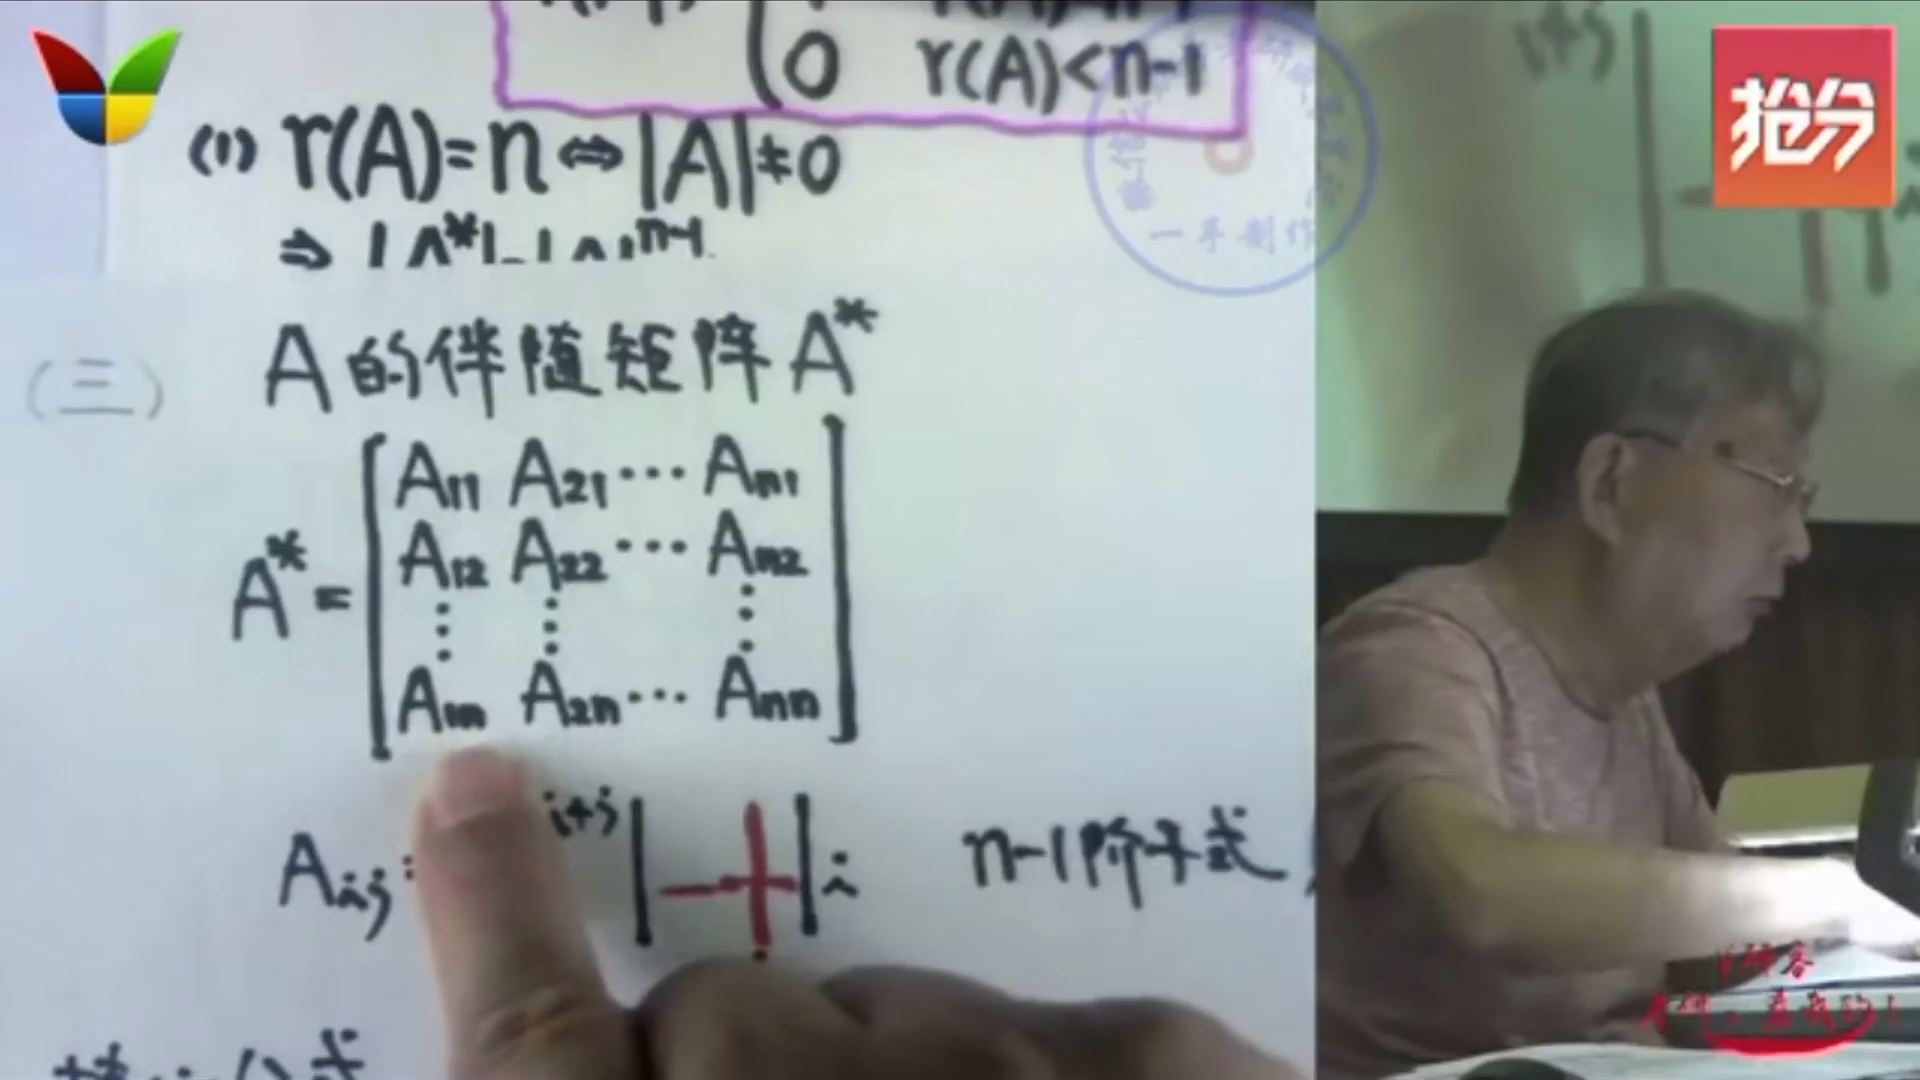 0 r(A)<n-1
(1) r(A)=n⇔|A|≠0
⇒ |A*|=|A|ⁿ⁻¹
(三) A的伴随矩阵A*
A*=
A₁₁ A₂₁ ⋯ Aₙ₁
A₁₂ A₂₂ ⋯ Aₙ₂
⋮ ⋮ ⋮
A₁ₙ A₂ₙ ⋯ Aₙₙ
Aᵢⱼ i+j i n-1阶子式
公式
抢分
一手制作
i+j